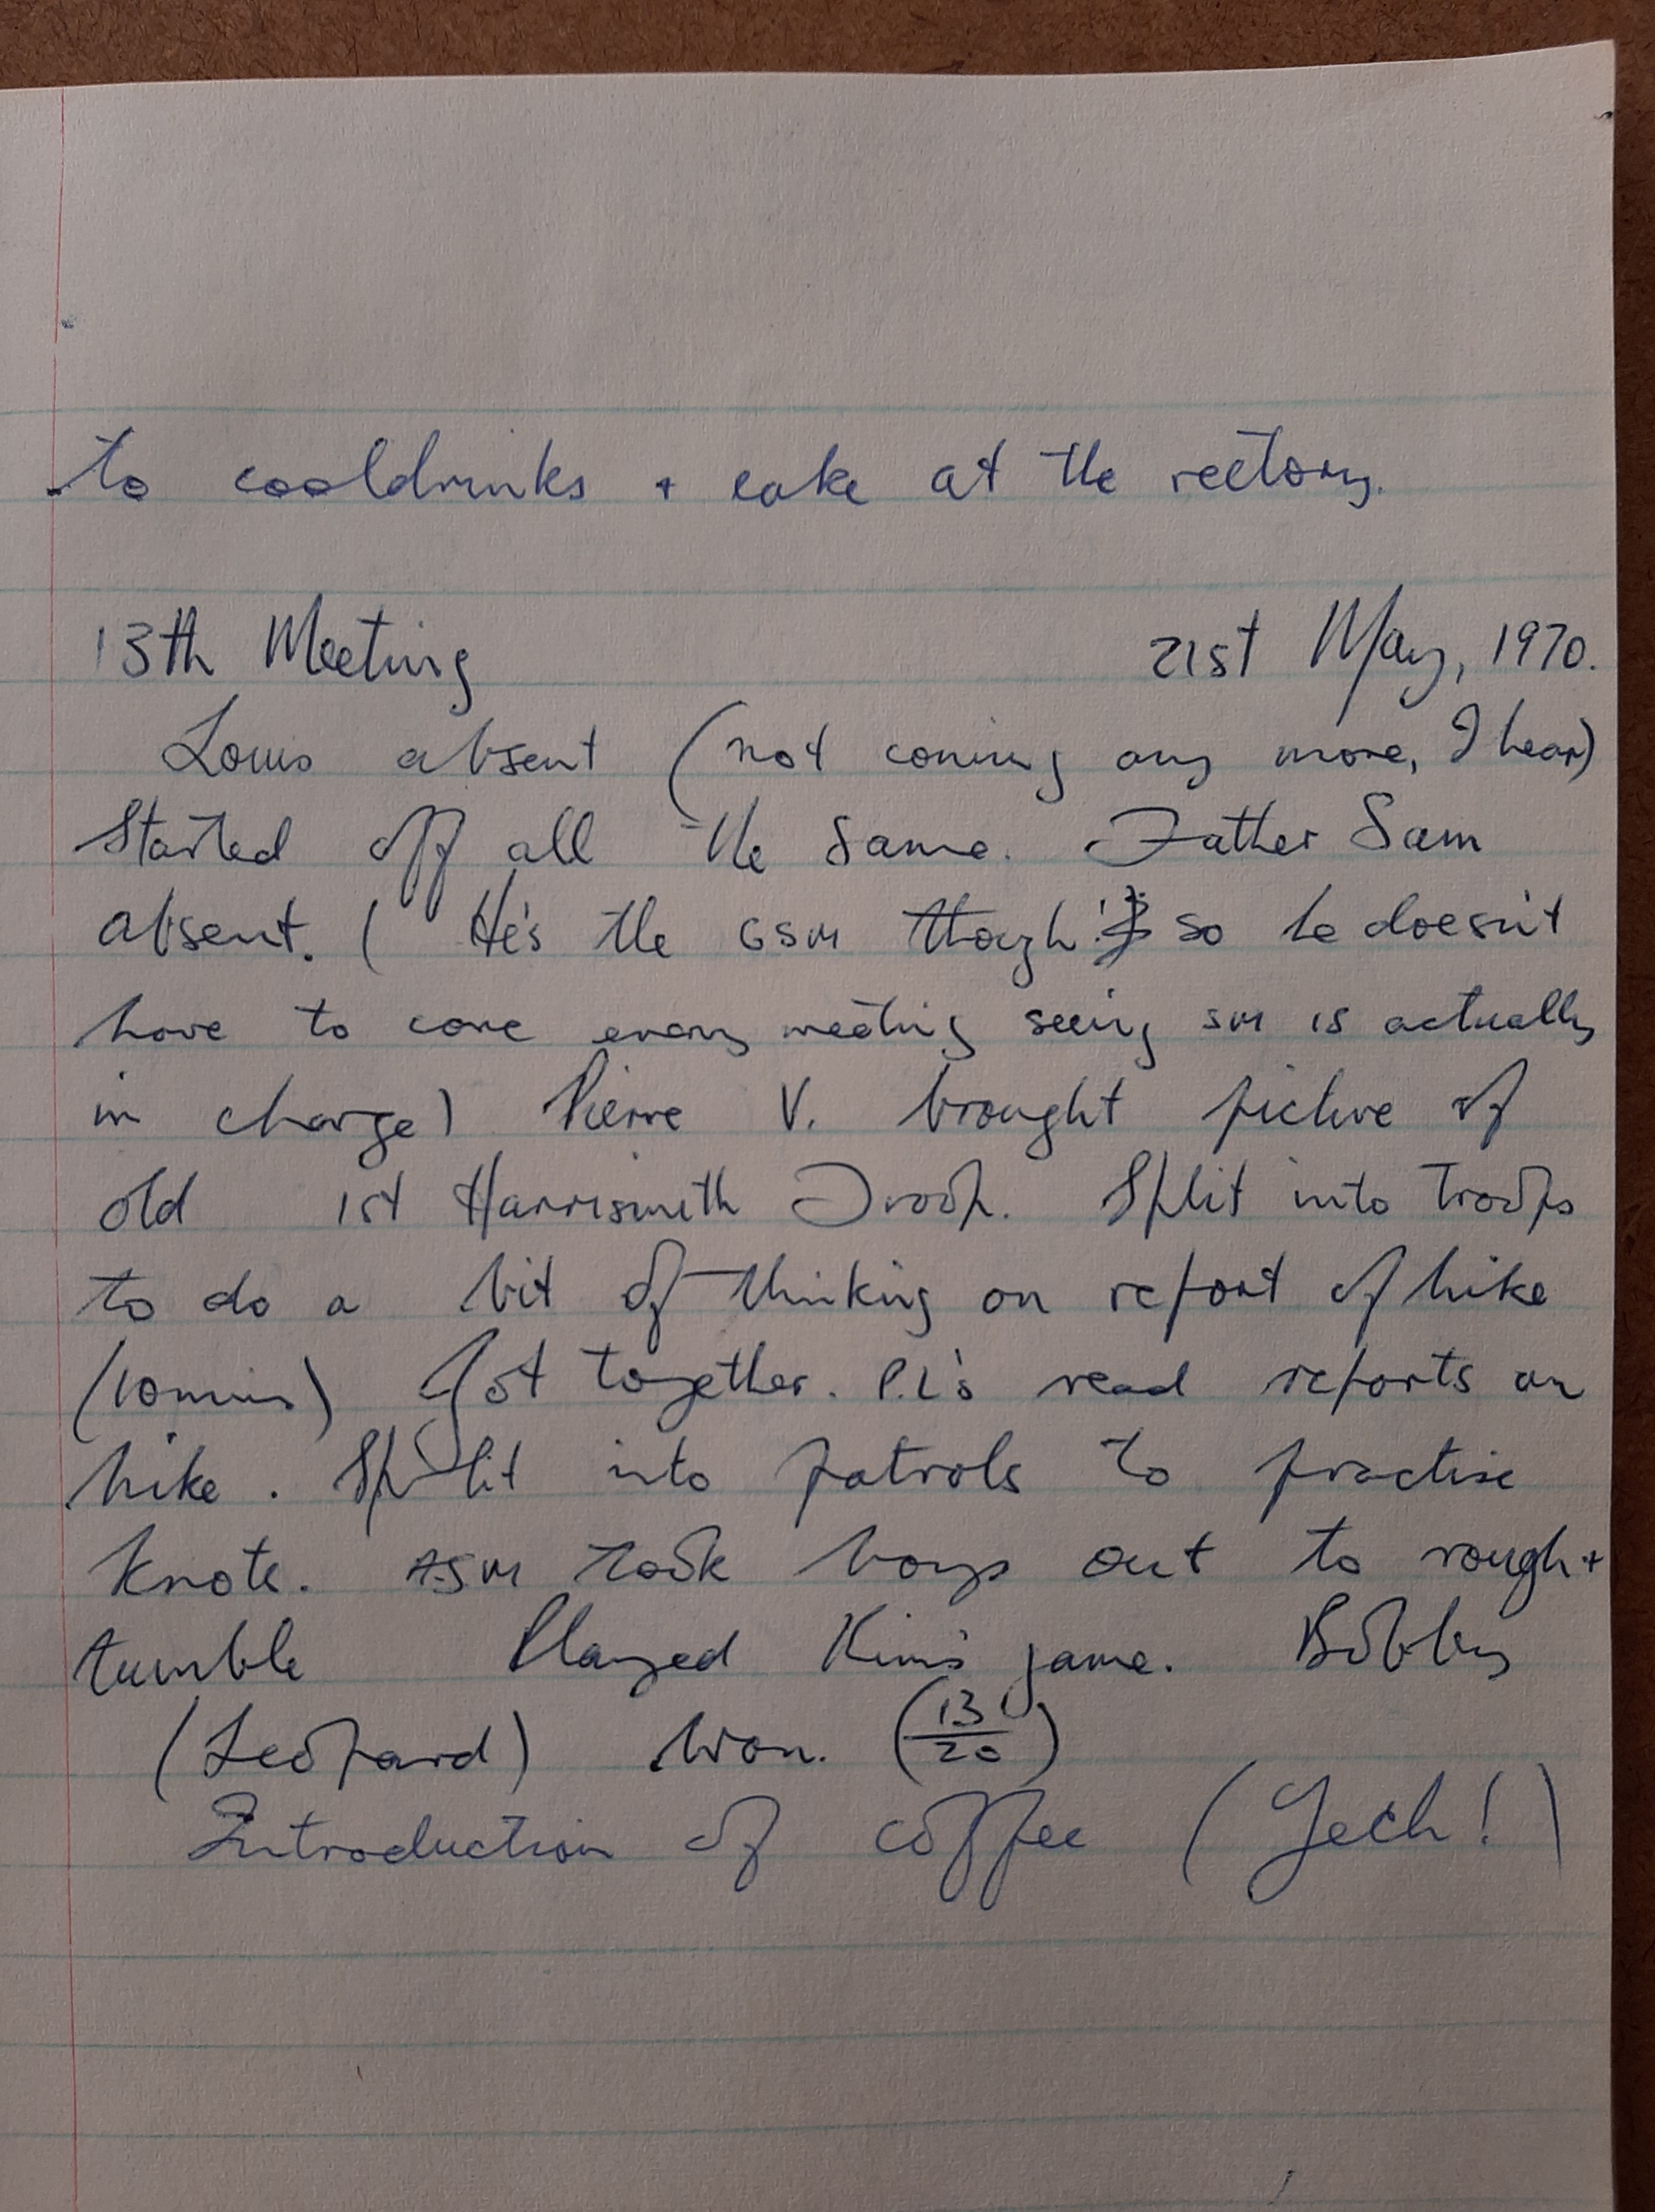 to cooldrinks + cake at the rectory.
13th Meeting 21st May, 1970.
Louis absent (not coming any more, I hear)
Started off all the same. Father Sam
absent. ( He's the GSM though so he doesn't
have to come every meeting seeing SM is actually
in charge) Pierre V. brought picture of
old 1st Harrismith Troop. Split into Troops
to do a bit of thinking on report of hike
(10 mins) Got together. P.L's read reports on
hike. Split into patrols to practise
knots. ASM took boys out to rough +
tumble Played Kim's game. Bobby
(Leopard) won. (13/20)
Introduction of coffee (Yech!)